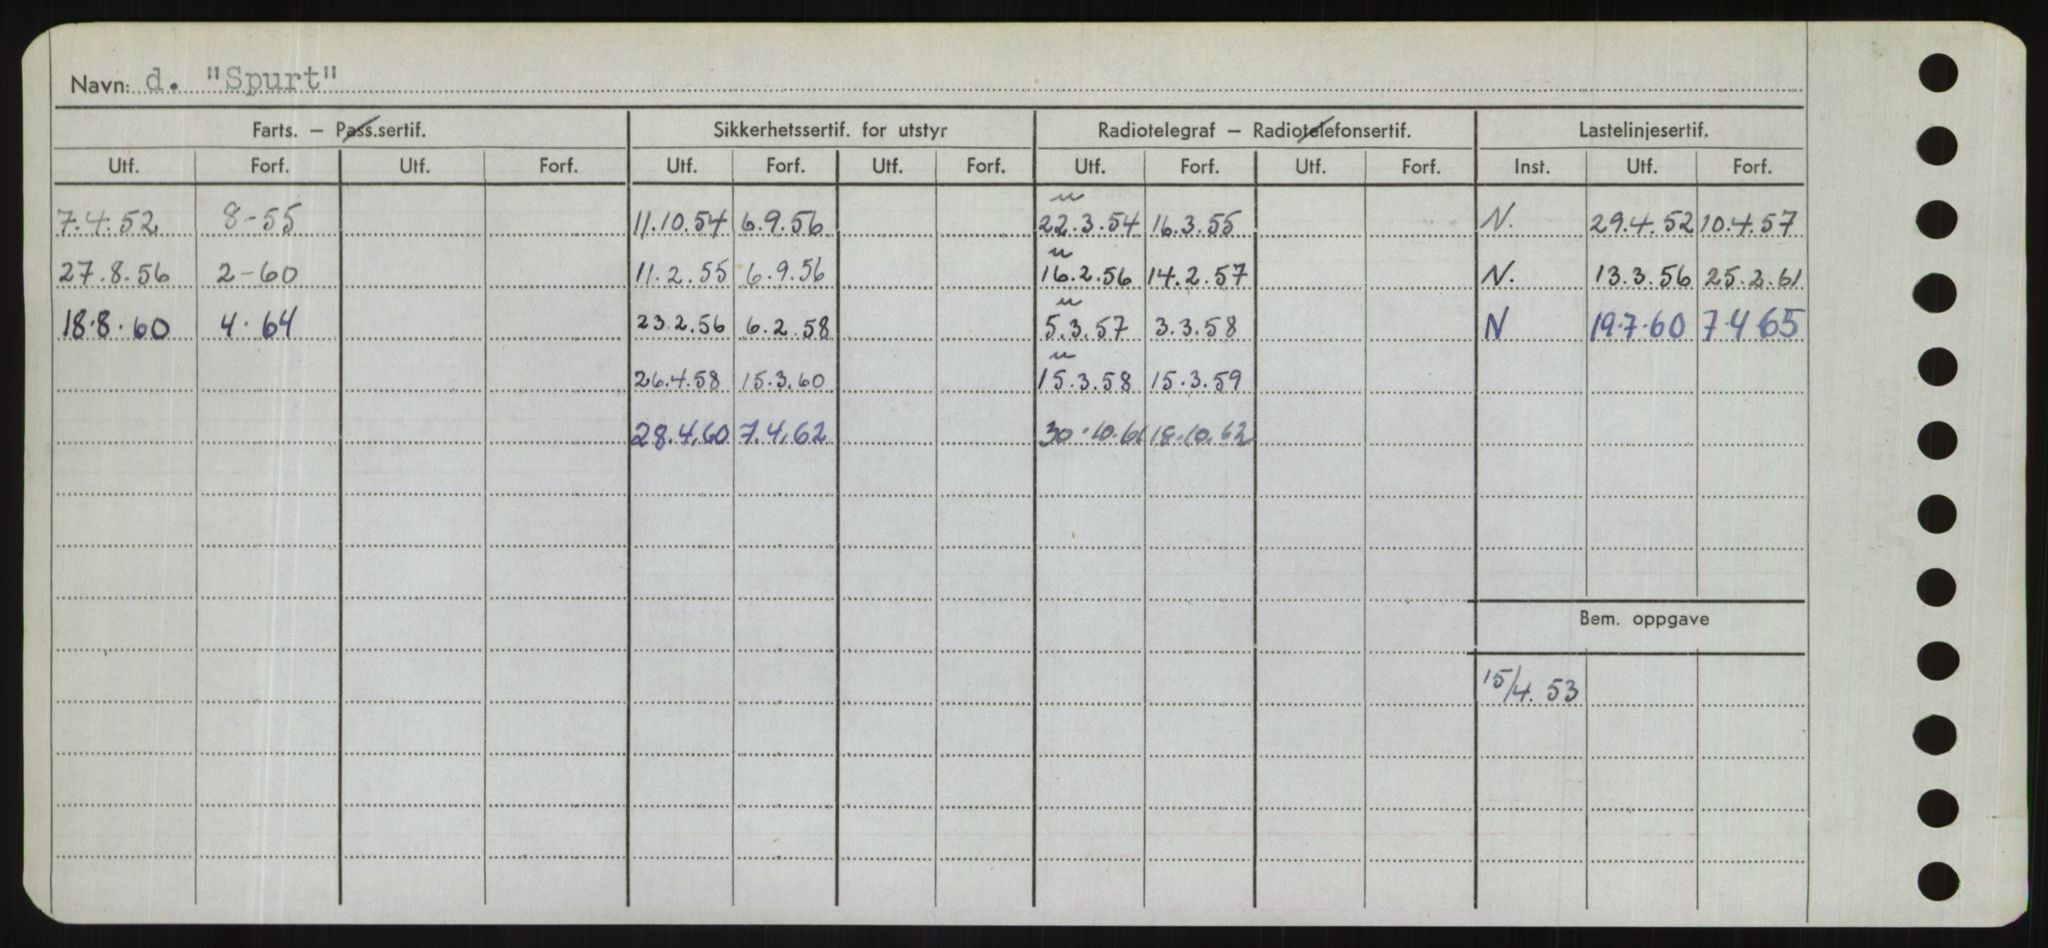 Navn: d. "Spurt"
Farts. – Pass.sertif. Sikkerhetssertif. for utstyr Radiotelegraf – Radiotelefonsertif. Lastelinjesertif.
Utf. Forf. Utf. Forf. Utf. Forf. Utf. Forf. Utf. Forf. Utf. Forf. Inst. Utf. Forf.
7.4.52 8-55 11.10.54 6.9.56 22.3.54 16.3.55 N. 29.4.52 10.4.57
27.8.56 2-60 11.2.55 6.9.56 16.2.56 14.2.57 N. 13.3.56 25.2.61
18.8.60 4.64 23.2.56 6.2.58 5.3.57 3.3.58 N 19.7.60 7.4 65
26.4.58 15.3.60 15.3.58 15.3.59
28.4.60 7.4.62 30.10.61 18.10.62
Bem. oppgave
15/4.53